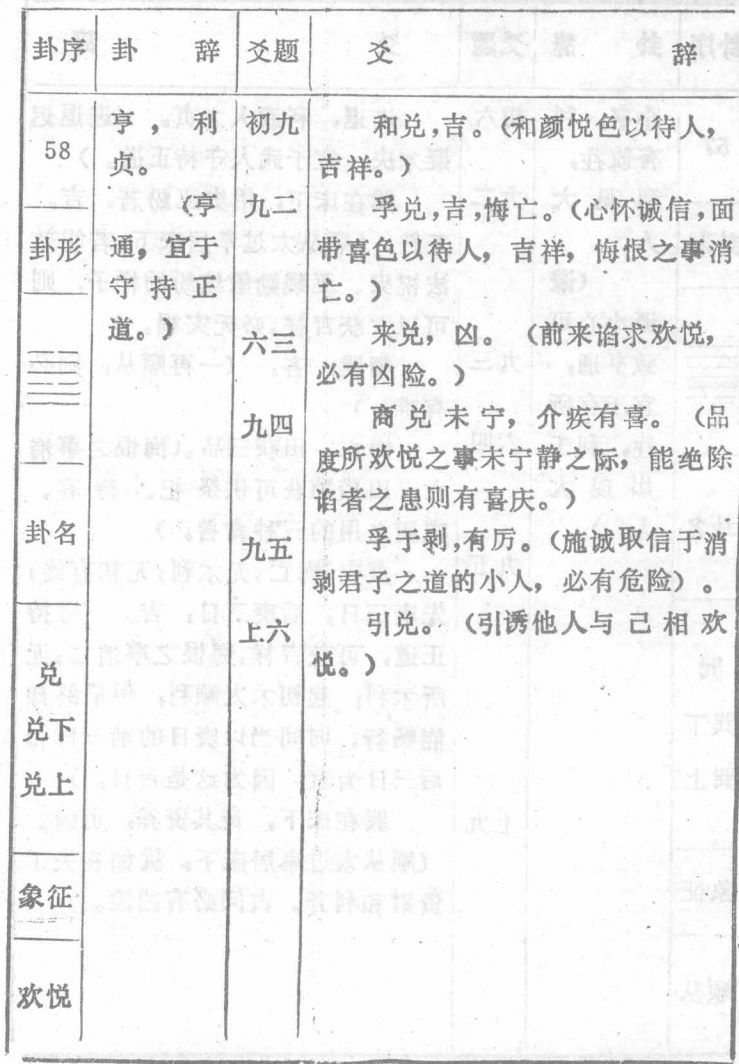 卦序 卦 辞 爻题 爻 辞
58
卦形
卦名
兑
兑下
兑上
象征
欢悦
亨，利
贞。
（亨
通，宜于
守持正
道。）
初九
和兑，吉。（和颜悦色以待人，
吉祥。）
九二
孚兑，吉；悔亡。（心怀诚信，面
带喜色以待人，吉祥，悔恨之事消
亡。）
六三
来兑，凶。（前来谄求欢悦，
必有凶险。）
九四
商兑未宁，介疾有喜。（品
度所欢悦之事未宁静之际，能绝除
谄者之患则有喜庆。）
九五
孚于剥，有厉。（施诚取信于消
剥君子之道的小人，必有危险）。
上六
引兑。（引诱他人与己相欢
悦。）